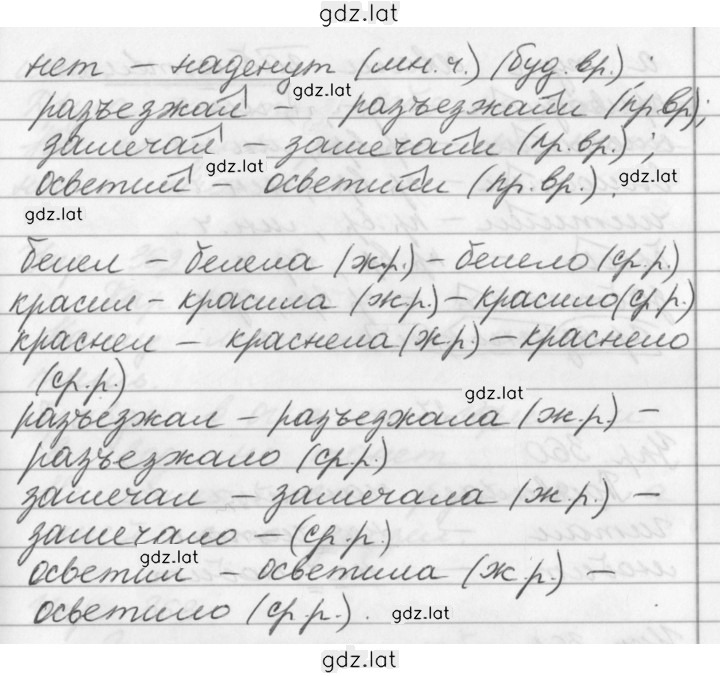 gdz.lat
нет – наденут (мн.ч.) (буд.вр.)
gdz.lat
разъезжал – разъезжали (пр.вр);
замечал – замечали (пр.вр.);
gdz.lat
осветил – осветили (пр.вр.).
gdz.lat
gdz.lat
белел – белела (ж.р.) – белело (ср.р.)
красил – красила (ж.р.) – красило (ср.р.)
краснел – краснела (ж.р.) – краснело
(ср.р.)
gdz.lat
разъезжал – разъезжала (ж.р.) –
разъезжало (ср.р.)
замечал – замечала (ж.р.) –
замечало – (ср.р.)
gdz.lat
осветил – осветила (ж.р.) –
осветило (ср.р.).
gdz.lat
gdz.lat